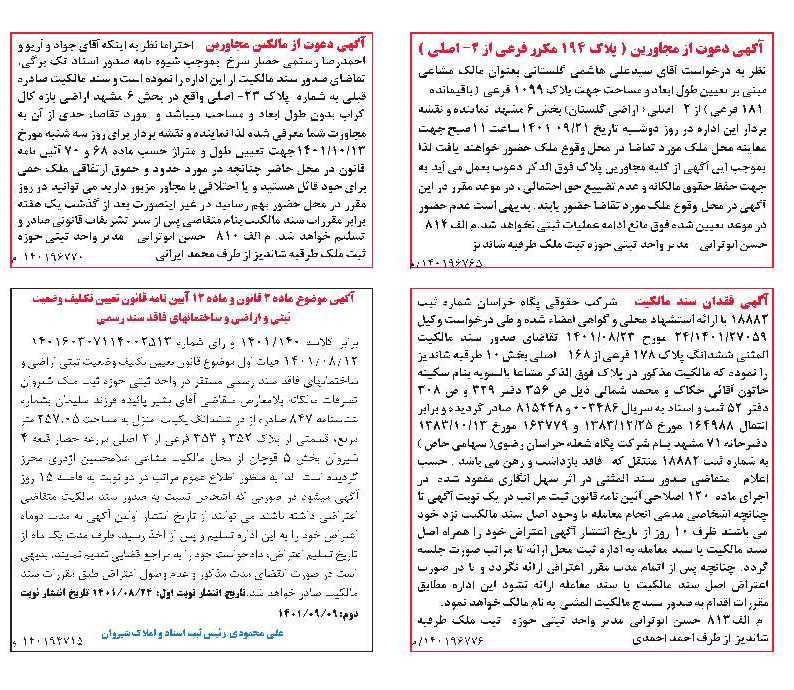 آگهی دعوت از مجاورین ( پلاک ۱۹۴ مکرر فرعی از ۲- اصلی )
نظر به درخواست آقای سیدعلی هاشمی گلستانی بعنوان مالک مشاعی
مبنی بر تعیین طول ابعاد و مساحت جهت پلاک ۱۰۹۹ فرعی ( باقیمانده
۱۸۱ فرعی ) از ۲- اصلی ( اراضی گلستان) بخش ۶ مشهد نماینده و نقشه
بردار این اداره در روز دوشنبه تاریخ ۱۴۰۱/۰۹/۲۱ ساعت ۱۱ صبح جهت
معاینه محل ملک مورد تقاضا در محل وقوع ملک حضور خواهند یافت لذا
بموجب این آگهی از کلیه مجاورین پلاک فوق الذکر دعوت بعمل می آید به
جهت حفظ حقوق مالکانه و عدم تضییع حق احتمالی ، در موعد مقرر در این
آگهی در محل وقوع ملک مورد تقاضا حضور یابند. بدیهی است عدم حضور
در موعد تعیین شده فوق مانع ادامه عملیات ثبتی نخواهد شد. م الف ۸۱۴
حسن ابوترابی مدیر واحد ثبتی حوزه ثبت ملک طرقبه شاندیز
۱۴۰۱۹۶۷۶۵/م
آگهی دعوت از مالکین مجاورین احتراما نظر به اینکه آقای جواد و آریو و
احمدرضا رستمی حصار سرخ بموجب شیوه نامه صدور اسناد تک برگی،
تقاضای صدور سند مالکیت از این اداره را نموده است و سند مالکیت صادره
قبلی به شماره پلاک ۲۳- اصلی واقع در بخش ۶ مشهد اراضی بازه کال
کراب بدون طول ابعاد و مساحت میباشد و مورد تقاضا، حدی از آن به
مجاورت شما معرفی شده لذا نماینده و نقشه بردار برای روز سه شنبه مورخ
۱۴۰۱/۱۰/۱۳ جهت تعیین طول و متراژ حسب ماده ۶۸ و ۷۰ آئین نامه
قانون در محل حاضر چنانچه در مورد حدود و حقوق ارتفاقی ملک حقی
برای خود قائل هستید و یا اختلافی با مجاور مزبور دارید می توانید در روز
مقرر در محل حضور بهم رسانید در غیر اینصورت بعد از گذشت یک هفته
برابر مقررات سند مالکیت بنام متقاضی پس از سیر تشریفات قانونی صادر و
تسلیم خواهد شد. م الف ۸۱۰ حسن ابوترابی مدیر واحد ثبتی حوزه
ثبت ملک طرقبه شاندیز از طرف محمد ایرانی
۱۴۰۱۹۶۷۷۰ م
آگهی فقدان سند مالکیت شرکت حقوقی پگاه خراسان شماره ثبت
۱۸۸۸۲ با ارائه استشهاد محلی و گواهی امضاء شده و طی درخواست وکیل
۲۴/۱۴۰۱/۲۷۰۵۹ مورخ ۱۴۰۱/۰۸/۲۳ تقاضای صدور سند مالکیت
المثنی ششدانگ پلاک ۱۷۸ فرعی از ۱۶۸ اصلی بخش ۱۰ طرقبه شاندیز
را نموده که مالکیت مذکور در پلاک فوق الذکر مشاعا بالسویه بنام سکینه
خاتون آقائی حکاک و محمد شمالی ذیل ص ۳۵۶ دفتر ۳۲۹ و ص ۳۰۸
دفتر ۵۲ ثبت و اسناد به سریال ۰۰۲۴۸۶ و ۸۱۵۴۴۸ صادر گردیده و برابر
انتقال ۱۶۴۹۸۸ مورخ ۱۳۸۳/۱۲/۲۵ و ۱۶۳۷۷۹ مورخ ۱۳۸۳/۱۰/۱۳
دفترخانه ۷۱ مشهد بنام شرکت پگاه شعله خراسان رضوی( سهامی خاص )
به شماره ثبت ۱۸۸۸۲ منتقل که فاقد بازداشت و رهن می باشد . حسب
اعلام متقاضی صدور سند المثنی در اثر سهل انگاری مفقود شده در
اجرای ماده ۱۲۰ اصلاحی آئین نامه قانون ثبت مراتب در یک نوبت آگهی تا
چنانچه اشخاصی مدعی انجام معامله با وجود اصل سند مالکیت نزد خود
می باشند ظرف ۱۰ روز از تاریخ انتشار آگهی اعتراض خود را همراه اصل
سند مالکیت یا سند معامله به اداره ثبت محل ارائه تا مراتب صورت جلسه
گردد. چنانچه پس از اتمام مدت مقرر اعتراض ارائه نگردد و یا در صورت
اعتراض اصل سند مالکیت یا سند معامله ارائه نشود این اداره مطابق
مقررات اقدام به صدور سند مالکیت المثنی به نام مالک خواهد نمود.
م الف۸۱۳ حسن ابوترابی مدیر واحد ثبتی حوزه ثبت ملک طرقبه
شاندیز از طرف احمد احمدی
۱۴۰۱۹۶۷۷۶/م
آگهی موضوع ماده ۳ قانون و ماده ۱۳ آیین نامه قانون تعیین تکلیف وضعیت
ثبتی و اراضی و ساختمانهای فاقد سند رسمی
برابر کلاسه ۱۴۰۱/۱۴۰ و رای شماره ۱۴۰۱۶۰۳۰۷۱۱۴۰۰۲۵۱۳
۱۴۰۱/۰۸/۱۲ هیات اول موضوع قانون تعیین تکلیف وضعیت ثبتی اراضی و
ساختمانهای فاقد سند رسمی مستقر در واحد ثبتی حوزه ثبت ملک شیروان
تصرفات مالکانه بلامعارض متقاضی آقای بشیر پاینده فرزند سلیمان بشماره
شناسنامه ۸۴۷ صادره از در ششدانگ یکباب منزل به مساحت ۲۵۷.۰۵ متر
مربع، قسمتی از پلاک ۳۵۲ و ۳۵۳ فرعی از ۲ اصلی مزرعه حصار قطعه ۴
شیروان بخش ۵ قوچان از محل مالکیت مشاعی غلامحسین اژدری محرز
گردیده است. لذا به منظور اطلاع عموم مراتب در دو نوبت به فاصله ۱۵ روز
آگهی میشود در صورتی که اشخاص نسبت به صدور سند مالکیت متقاضی
اعتراضی داشته باشند می توانند از تاریخ انتشار اولین آگهی به مدت دوماه
اعتراض خود را به این اداره تسلیم و پس از اخذ رسید، ظرف مدت یک ماه از
تاریخ تسلیم اعتراض، دادخواست خود را به مراجع قضایی تقدیم نمایند. بدیهی
است در صورت انقضای مدت مذکور و عدم وصول اعتراض طبق مقررات سند
مالکیت صادر خواهد شد. تاریخ انتشار نوبت اول: ۱۴۰۱/۰۸/۲۴ تاریخ انتشار نوبت
دوم: ۱۴۰۱/۰۹/۰۹
علی محمودی رئیس ثبت اسناد و املاک شیروان
۱۴۰۱۹۲۷۱۵ و